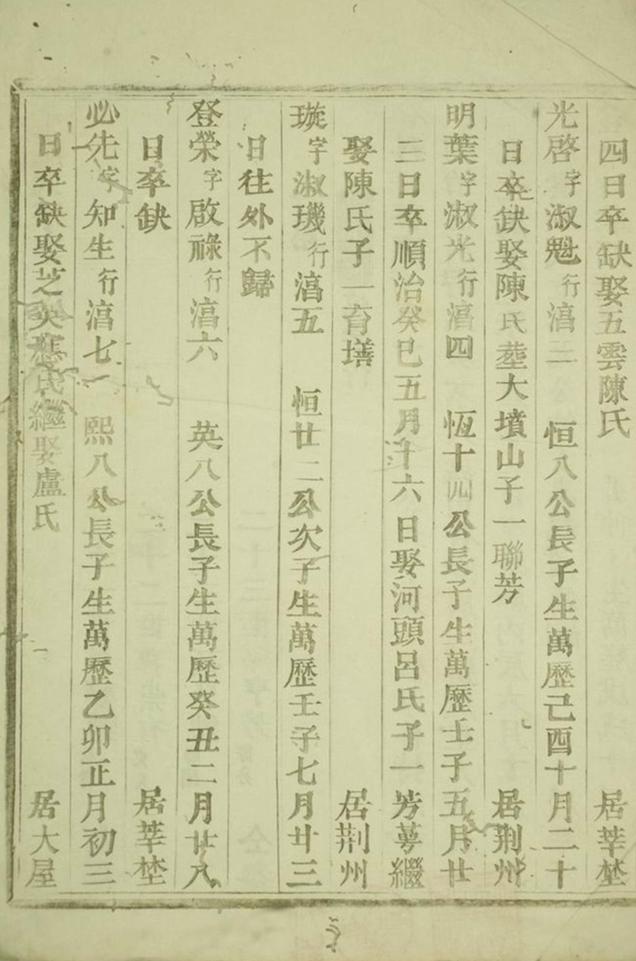 四日卒缺娶五雲陳氏 居莘塋
光啓字淑魁行漓三 恒八公長子生萬歷己酉十月二十
日卒缺娶陳氏葬大墳山子一聯芳 居荆州
明葉字淑光行漓四 恆十四公長子生萬歷壬子五月廿
三日卒順治癸巳五月十六日娶河頭呂氏子一芳萼繼
娶陳氏子一育墡 居荆州
璇字淑璣行漓五 恒廿二公次子生萬歷壬子七月廿三
日往外不歸
登榮字啟祿行漓六 英八公長子生萬歷癸丑二月廿八
日卒缺 居莘塋
必先字知生行漓七 熙八公長子生萬歷乙卯正月初三
日卒缺娶芝英應氏繼娶盧氏 居大屋